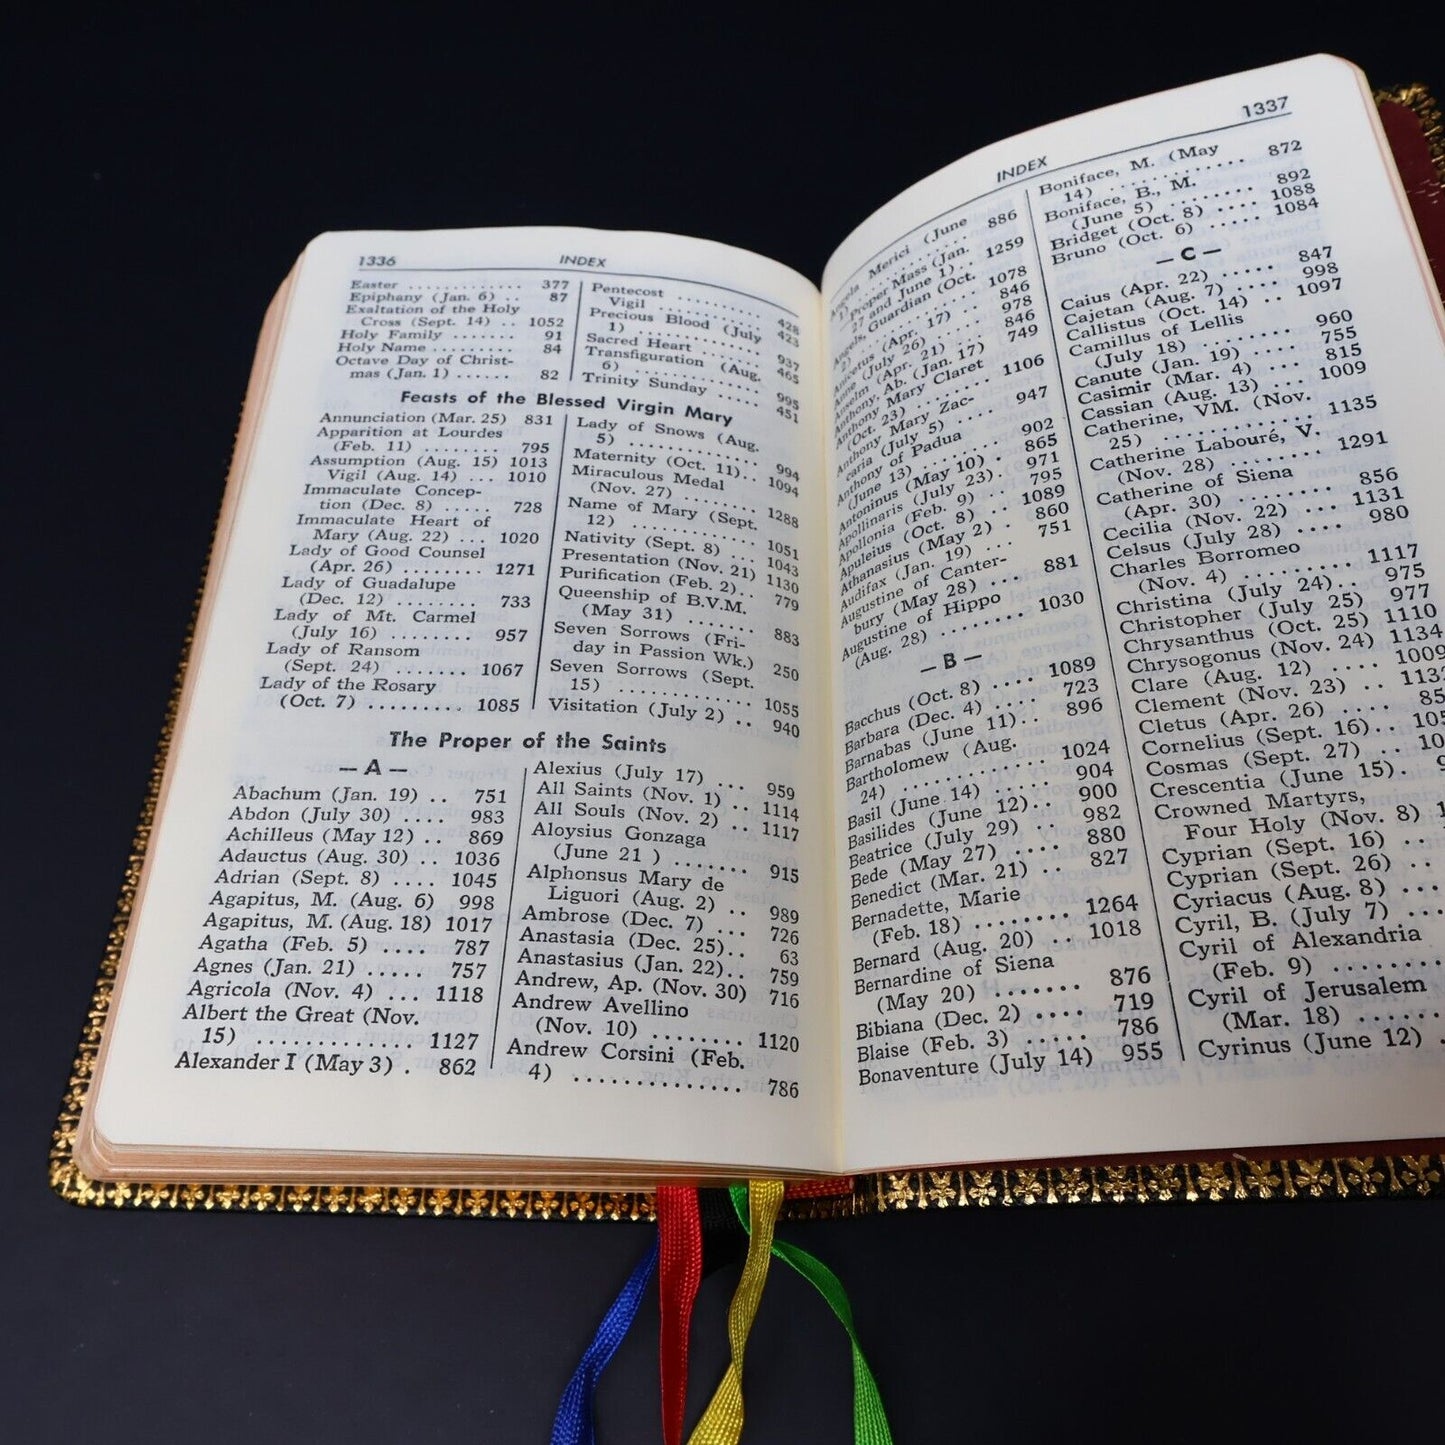 1336
INDEX
Easter ............. 377
Epiphany (Jan. 6) .. 87
Exaltation of the Holy
Cross (Sept. 14) .. 1052
Holy Family ....... 91
Holy Name ......... 84
Octave Day of Christ-
mas (Jan. 1) ...... 82
Pentecost ......... 428
Vigil ............. 423
Precious Blood (July
1) ............... 937
Sacred Heart ....... 465
Transfiguration (Aug.
6) ............... 995
Trinity Sunday ..... 451
Feasts of the Blessed Virgin Mary
Annunciation (Mar. 25) 831
Apparition at Lourdes
(Feb. 11) ........ 795
Assumption (Aug. 15) 1013
Vigil (Aug. 14) ... 1010
Immaculate Concep-
tion (Dec. 8) ..... 728
Immaculate Heart of
Mary (Aug. 22) ... 1020
Lady of Good Counsel
(Apr. 26) ........ 1271
Lady of Guadalupe
(Dec. 12) ........ 733
Lady of Mt. Carmel
(July 16) ........ 957
Lady of Ransom
(Sept. 24) ....... 1067
Lady of the Rosary
(Oct. 7) ......... 1085
Lady of Snows (Aug.
5) ............... 994
Maternity (Oct. 11).. 1094
Miraculous Medal
(Nov. 27) ........ 1288
Name of Mary (Sept.
12) .............. 1051
Nativity (Sept. 8) ... 1043
Presentation (Nov. 21) 1130
Purification (Feb. 2).. 779
Queenship of B.V.M.
(May 31) ....... 883
Seven Sorrows (Fri-
day in Passion Wk.) 250
Seven Sorrows (Sept.
15) .............. 1055
Visitation (July 2) .. 940
The Proper of the Saints
— A —
Abachum (Jan. 19) .. 751
Abdon (July 30) .... 983
Achilleus (May 12) .. 869
Adauctus (Aug. 30) .. 1036
Adrian (Sept. 8) .... 1045
Agapitus, M. (Aug. 6) 998
Agapitus, M. (Aug. 18) 1017
Agatha (Feb. 5) .... 787
Agnes (Jan. 21) ..... 757
Agricola (Nov. 4) ... 1118
Albert the Great (Nov.
15) .............. 1127
Alexander I (May 3) . 862
Alexius (July 17) ... 959
All Saints (Nov. 1) .. 1114
All Souls (Nov. 2) .. 1117
Aloysius Gonzaga
(June 21 ) ....... 915
Alphonsus Mary de
Liguori (Aug. 2) .. 989
Ambrose (Dec. 7) ... 726
Anastasia (Dec. 25).. 63
Anastasius (Jan. 22).. 759
Andrew, Ap. (Nov. 30) 716
Andrew Avellino
(Nov. 10) ........ 1120
Andrew Corsini (Feb.
4) ............... 786
1337
INDEX
Angela Merici (June
1) ............... 886
—Proper Mass (Jan.
27 and June 1).. 1259
Angels, Guardian (Oct.
2) ............... 1078
Anicetus (Apr. 17) .. 846
Anne (July 26) ..... 978
Anselm (Apr. 21) ... 846
Anthony, Ab. (Jan. 17) 749
Anthony Mary Claret
(Oct. 23) ......... 1106
Anthony Mary Zac-
caria (July 5) ..... 947
Anthony of Padua
(June 13) ........ 902
Antoninus (May 10) . 865
Apollinaris (July 23). 971
Apollonia (Feb. 9) .. 795
Apuleius (Oct. 8) .. 1089
Athanasius (May 2) . 860
Audifax (Jan. 19) ... 751
Augustine of Canter-
bury (May 28) .... 881
Augustine of Hippo
(Aug. 28) ........ 1030
— B —
Bacchus (Oct. 8) .... 1089
Barbara (Dec. 4) .... 723
Barnabas (June 11).. 896
Bartholomew (Aug.
24) .............. 1024
Basil (June 14) ..... 904
Basilides (June 12).. 900
Beatrice (July 29) .. 982
Bede (May 27) .... 880
Benedict (Mar. 21) .. 827
Bernadette, Marie
(Feb. 18) ........ 1264
Bernard (Aug. 20) .. 1018
Bernardine of Siena
(May 20) ....... 876
Bibiana (Dec. 2) .... 719
Blaise (Feb. 3) ..... 786
Bonaventure (July 14) 955
Boniface, M. (May
14) .............. 872
Boniface, B., M.
(June 5) ........ 892
Bridget (Oct. 8) .... 1088
Bruno (Oct. 6) .... 1084
— C —
Caius (Apr. 22) ..... 847
Cajetan (Aug. 7) .... 998
Callistus (Oct. 14) .. 1097
Camillus of Lellis
(July 18) ........ 960
Canute (Jan. 19) .... 755
Casimir (Mar. 4) .... 815
Cassian (Aug. 13) ... 1009
Catherine, VM. (Nov.
25) .............. 1135
Catherine Labouré, V.
(Nov. 28) ........ 1291
Catherine of Siena
(Apr. 30) ........ 856
Cecilia (Nov. 22) ... 1131
Celsus (July 28) .... 980
Charles Borromeo
(Nov. 4) .......... 1117
Christina (July 24).. 975
Christopher (July 25) 977
Chrysanthus (Oct. 25) 1110
Chrysogonus (Nov. 24) 1134
Clare (Aug. 12) .... 1009
Clement (Nov. 23) .. 113
Cletus (Apr. 26) .... 85
Cornelius (Sept. 16).. 105
Cosmas (Sept. 27) .. 10
Crescentia (June 15).
Crowned Martyrs,
Four Holy (Nov. 8) 1
Cyprian (Sept. 16) ..
Cyprian (Sept. 26) ..
Cyriacus (Aug. 8) ...
Cyril, B. (July 7) ...
Cyril of Alexandria
(Feb. 9) ........
Cyril of Jerusalem
(Mar. 18) .......
Cyrinus (June 12) .